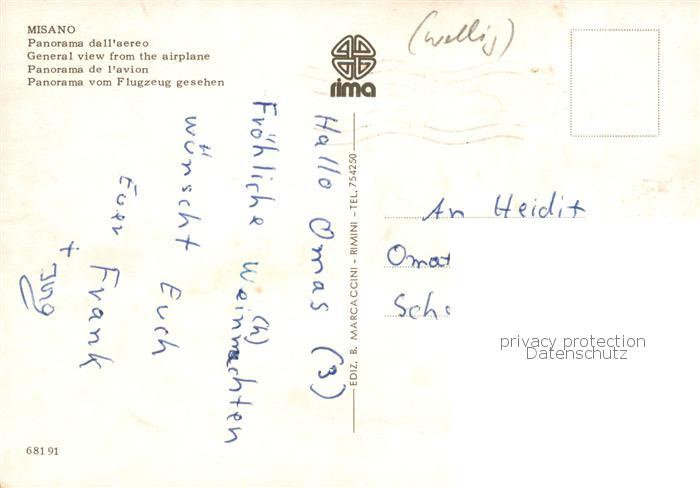 MISANO
Panorama dall'aereo
General view from the airplane
Panorama de l'avion
Panorama vom Flugzeug gesehen
rima
(wellig)
Hallo Omas (3)
Fröhliche Weinnachten
(h)
wünscht Euch
Euer
Frank
+
EDIZ. B. MARCACCINI - RIMINI - TEL. 754250
An Heidi +
Oma +
Sch
privacy protection
Datenschutz
68191